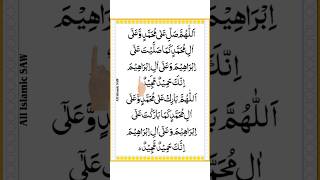 اَللّٰهُمَّ صَلِّ عَلٰى مُحَمَّدٍ وَّعَلٰٓى
اٰلِ مُحَمَّدٍ كَمَا صَلَّيْتَ عَلٰٓى
اِبْرَاهِيْمَ وَعَلٰٓى اٰلِ اِبْرَاهِيْمَ
اِنَّكَ حَمِيْدٌ مَّجِيْدٌ
اَللّٰهُمَّ بَارِكْ عَلٰى مُحَمَّدٍ وَّعَلٰٓى
اٰلِ مُحَمَّدٍ كَمَا بَارَكْتَ عَلٰٓى
اِبْرَاهِيْمَ وَعَلٰٓى اٰلِ اِبْرَاهِيْمَ
اِنَّكَ حَمِيْدٌ مَّجِيْدٌ
All Islamic SAW